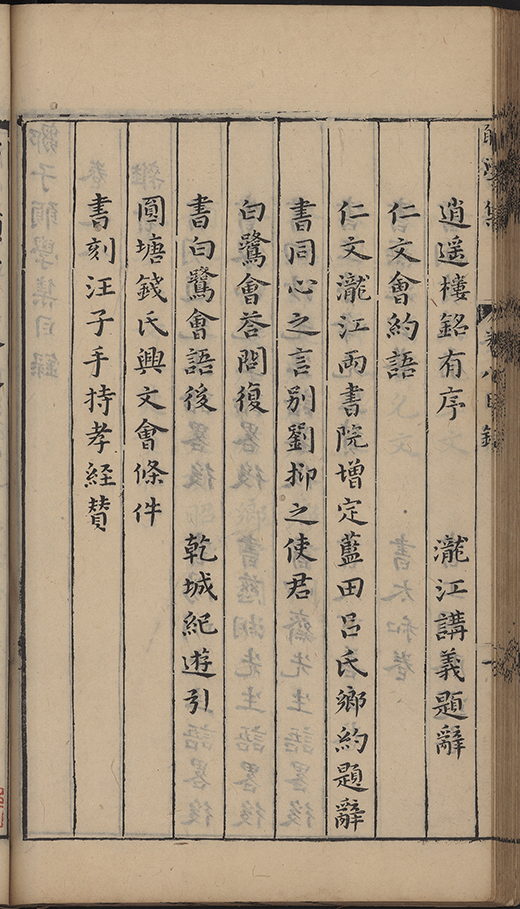 逍遥樓銘有序 瀧江講義題辭
仁文會約語
仁文瀧江兩書院增定藍田呂氏鄉約題辭
書同心之言别劉抑之使君
白鷺會荅問復
書白鷺會語後 乾城紀遊引
圓塘錢氏興文會條件
書刻汪子手持孝経賛